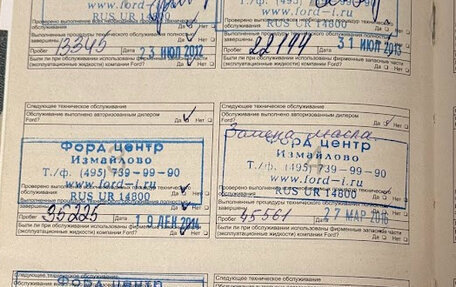 www.ford-i.ru
RUS UR 14800
Проверено выполнение
Выполненные процедуры технического обслуживания полностью
завершены. Да Нет
Пробег 13345 23 ИЮЛ 2012
Были ли при обслуживании использованы фирменные запасные части
(эксплуатационные жидкости) компании Ford? Да Нет
RUS UR 14800
Пробег 22144 31 ИЮЛ 2013
Были ли при обслуживании использованы фирменные запасные части
(эксплуатационные жидкости) компании Ford? Да Нет
Следующее техническое обслуживание
Обслуживание выполнено авторизованным дилером
Ford? Да Нет
Форд центр
Измайлово
Т./ф. (495) 739-99-90
www.ford-i.ru
RUS UR 14800
Пробег 35225 19 ДЕК 2014
Были ли при обслуживании использованы фирменные запасные части
(эксплуатационные жидкости) компании Ford? Да Нет
Следующее техническое обслуживание
Обслуживание выполнено авторизованным дилером
Ford? Да Нет
Замена масла
Форд центр
Измайлово
Т./ф. (495) 739-99-90
www.ford-i.ru
RUS UR 14800
Выполненные процедуры технического обслуживания полностью
завершены. Да Нет
Пробег 45561 27 МАР 2016
Были ли при обслуживании использованы фирменные запасные части
(эксплуатационные жидкости) компании Ford? Да Нет
Следующее техническое обслуживание
Форд центр
Следующее техническое обслуживание
Обслуживание выполнено авторизованным дилером